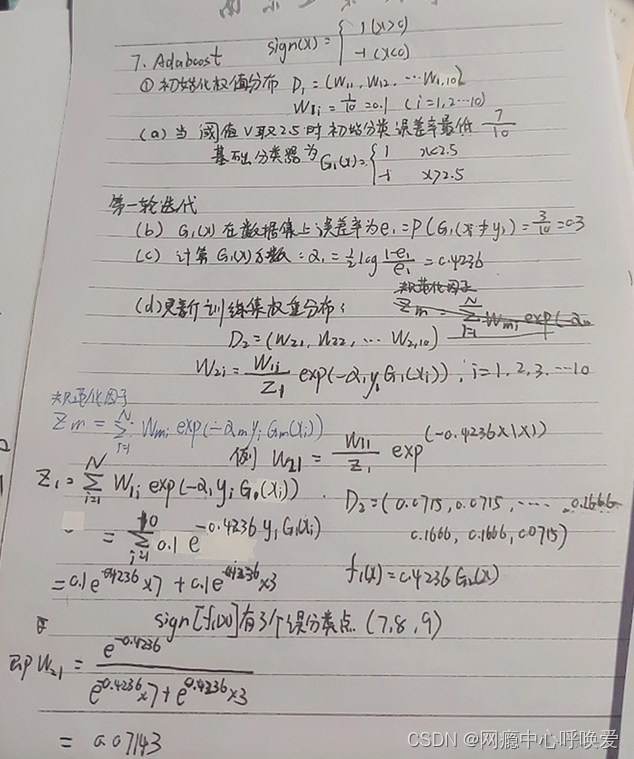 7. Adaboost sign(x) = { 1 (x>0)
-1 (x<0)
① 初始化权值分布 D₁ = (W₁₁, W₁₂, … W₁,₁₀)
W₁ᵢ = 1/10 = 0.1 (i=1,2…10)
(a) 当阈值 V取2.5时初始分类误差率最低 7/10
基础分类器为 G₁(x) = { 1 x<2.5
-1 x>2.5
第一轮迭代
(b) G₁(x) 在数据集上误差率为 e₁ = P(G₁(xᵢ≠yᵢ) = 3/10 = 0.3
(c) 计算 G₁(x) 系数: α₁ = 1/2 log (1-e₁)/e₁ = 0.4236
规范化因子
(d) 更新训练集权重分布: Zm = Σ(i=1,N) Wmᵢ exp(-αm
D₂ = (W₂₁, W₂₂, … W₂,₁₀)
W₂ᵢ = W₁ᵢ/Z₁ exp(-α₁yᵢG₁(xᵢ)), i=1,2,3,…10
规范化因子
Zm = Σ(i=1,N) Wmᵢ exp(-αmyᵢGm(xᵢ))
例 W₂₁ = W₁₁/Z₁ exp(-0.4236×1×1)
Z₁ = Σ(i=1,N) W₁ᵢ exp(-α₁yᵢG₁(xᵢ)) . D₂ = (0.0715, 0.0715, …… 0.1666
= Σ(i=1,10) 0.1 e^(-0.4236 yᵢG₁(xᵢ) 0.1666, 0.1666, 0.0715)
= 0.1e^(-0.4236)×7 + 0.1e^(-0.4236)×3 f₁(x) = 0.4236 G₂(x)
sign[f₁(x)] 有3个误分类点 (7,8,9)
即 W₂₁ = e^(-0.4236) / (e^(0.4236)×7 + e^(0.4236)×3)
= 0.07143
CSDN @网瘾中心呼唤爱